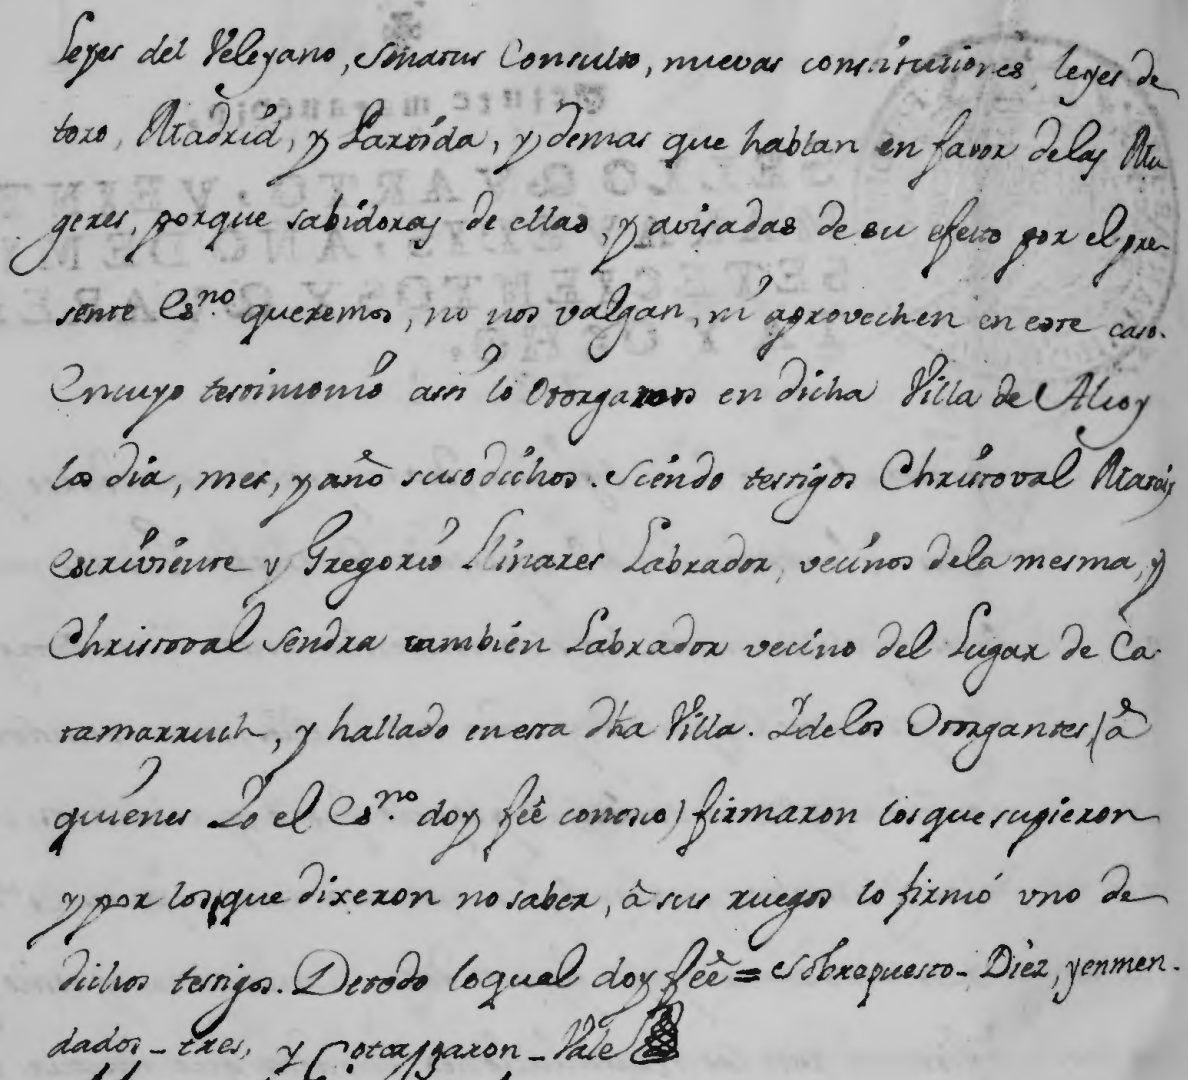 Leyes del Veleyano, senatus Consulto, nuevas constituciones, leyes de
toro, Madrid, y Partida, y demas que hablan en favor delas Mu
geres, porque sabidoras de ellas, y avisadas de su efecto por el pre-
sente Es.no queremos, no nos valgan, ni aprovechen en este caso.
Encuyo testimonio assi lo Otorgaron en dicha Villa de Alcoy
los dia, mes, y año susodichos. Siendo testigos Christoval
escriviente y Gregorio Llinares Labrador, vecinos dela mesma, y
Christoval Sendra tambien Labrador vecino del Lugar de Ca-
tamarruch, y hallado enesta dha Villa. Y delos Otorgantes, (â
quienes Yo el Es.no doy feê conosco) firmaron los que supieron
y por los que dixeron no saber, â sus ruegos lo firmó uno de
dichos testigos. Detodo loqual doy feê = sobrepuesto - Diez, y enmen-
dados - tres, y otorgaron - Vale